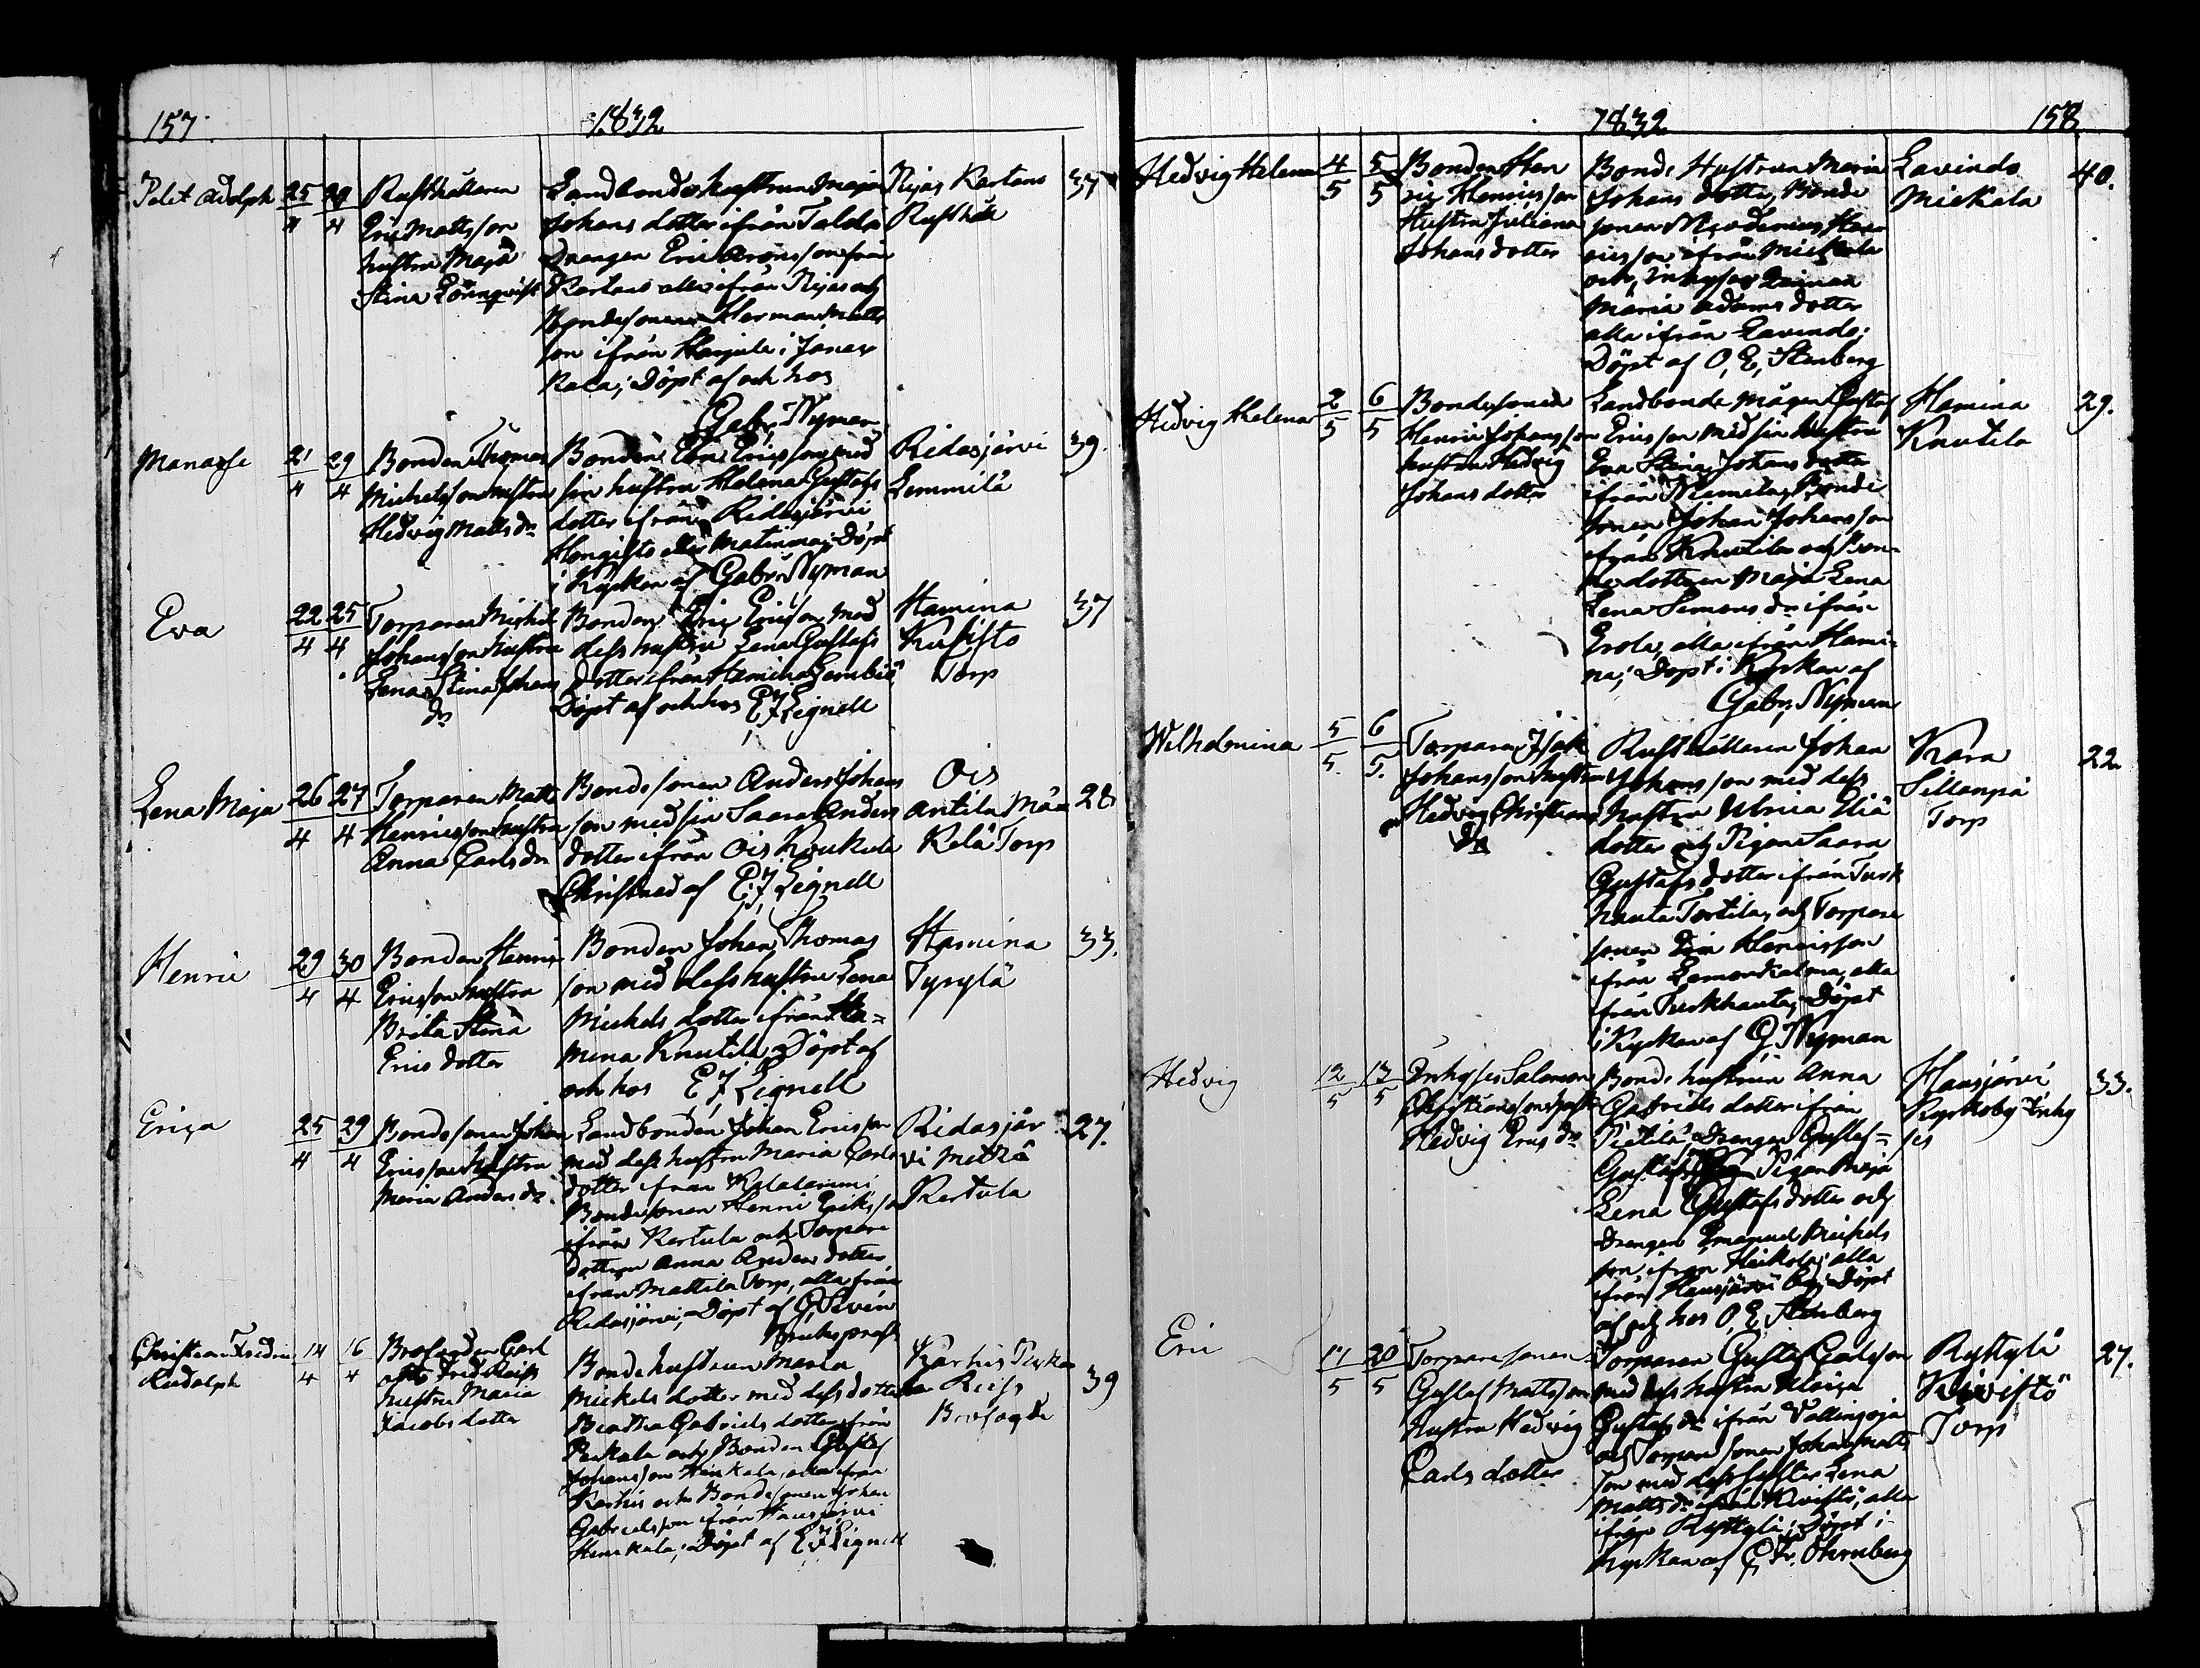 157.
1832
Adolph
25/4
29/4
Rusthållaren
Eric Mattsson
hustru Maja
Stina Lönnqvist
Landbondehustrun Maja
Johans dotter ifrån
Drengen Eric Aronsson från
alla ifrån Nyäs och
Bondesonen Herman Matts
son ifrån i Janak
kala; Döpt af och hos
Gabr. Nyman
Rusthåll
37
Manasse
21/4
29/4
Bonden Thomas
Michelsson hustru
Hedvig Matts dr
Bonden Eric Ericsson med
sin hustru Helena Gustafs
dotter ifrån Ridasjärvi
alla Döpt
i Kyrkan af Gabr. Nyman
Ridasjärvi
Lemmilä
39.
Eva
22/4
25/4
Torparen Michel
Johansson hustru
Lena Stina Johans
dr
Bonden Eric Ericson med
dess hustru Lena Gustafs
dotter ifrån Hamina
Döpt af och hos E J Lignell
Hamina
Kusisto
Torp
37
Lena Maja
26/4
27/4
Torparen Matts
Henricsson hustru
Anna Carls dr
Bondesonen Anders Johans
son med sin Saara Anders
dotter ifrån Ois
Christnad af E J Lignell
Ois
Antila Mäa
Kelä Torp
28
Henric
29/4
30/4
Bonden Henric
Ericsson hustru
Brita Stina
Erics dotter
Bonden Johan Thomas
son med dess hustru Lena
Michels dotter ifrån Ha=
mina Knutila; Döpt af
och hos E J Lignell
Hamina
Tyrylä
33.
Erica
25/4
29/4
Bondesonen Johan
Ericsson hustru
Maria Anders dr
Landbonden Johan Ericsson
med dess hustru Maria Carls
dotter ifrån
Bondesonen Henric Erikssn
ifrån Kertula och Torpare
dottern Anna Anders dotter
ifrån Mattila Torp, alla från
Ridasjärvi; Döpt af
Ridasjär
vi
Kertula
27.
Christian Fredric
Rudolph
14/4
16/4
Carl
Otto Fred. Reiss
hustru Maria
Jacobs dotter
Bondehustrun Maria
Michels dotter med dess dotter
Beatha Gabriels dotter ifrån
och Bonden Gustaf
Johansson alla ifrån
Karhis och Bondesonen Johan
Gabrielsson ifrån Hausjärvi
Döpt af E J Lignell
Karhis
Reiss
39
1832
158
Hedvig Helena
4/5
5/5
Bonden Hen
ric Henricsson
Hustru Juliana
Johans dotter
Bonde Hustrun Maria
Johans dotter, Bonde
sonen Nicodemus Hen
ricsson ifrån Mickala
och Inhyses Qvinnan
Maria Adams dotter
alla ifrån Lavinds;
Döpt af O. E. Stenberg
Lavinds
Mickala
40.
Hedvig Helena
2/5
6/5
Bondesonen
Henric Johansson
hustru Hedvig
Johans dotter
Landbonde Mågen Gustaf
Ericsson med sin hustru
Eva Stina Johans dotter
ifrån Niemelä, Bonde
sonen Johan Johansson
ifrån Knutila och Bon-
dedottern Maja Lena
Lena Simons dr ifrån
Erola, alla ifrån Hami-
na; Döpt i Kyrkan af
Gabr. Nyman
Hamina
Knutila
29.
Wilhelmina
5/5.
6/5.
Torparen Isak
Johansson hustru
Hedvig Christians
dr
Rusthållaren Johan
Johansson med dess
hustru Ulrica Eliä
dotter och Pigan Saara
Gustafs dotter ifrån Turk
hauta Tortila, och Torpare
sonen Eric Henricsson
ifrån alla
ifrån Turkhauta; Döpt
i Kyrkan af G Nyman
Kara
Sillanpä
Torp
22
Hedvig
12/5
13/5
Inhyses Salomon
Christiansson hustru
Hedvig Erics dr
Bonde hustrun Anna
Gabriels dotter ifrån
Pietilä, Drengen Gustaf
Pigan Maja
Lena Gustafs dotter och
Drengen Emanuel Michels
son ifrån Heikola; alla
ifrån Hausjärvi By; Döpt
af och hos O. E. Stenberg
Hausjärvi
Kyrkoby Inhy
ses
33.
Eric
17/5
20/5
Torparesonen
Gustaf Mattsson
hustru Hedvig
Carls dotter
Torparen Gustaf Carlsson
med dess hustru Ulrica
Gustafs dr ifrån
och Torparesonen Johan Matts
son med dess syster Lena
Matts dr ifrån Kivistö, alla
ifrån Ryttylä; Döpt i
Kyrkan af
Ryttylä
Kivistö
Torp
27.